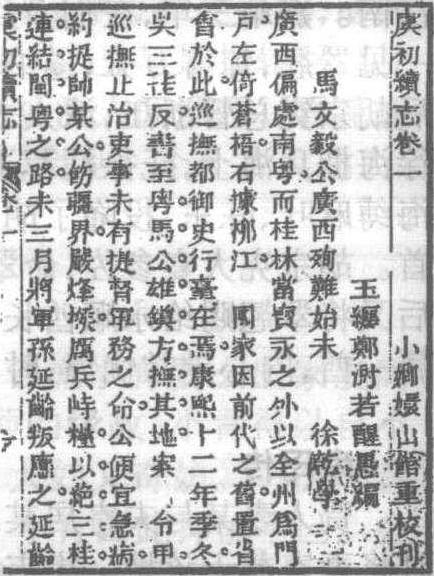 虞初續志卷一 小嫏嬛山館重校刊
玉䌙鄭澍若醒愚編
馬文毅公廣西殉難始末 徐乾學
廣西偏處南粵而桂林當賀永之外以全州爲門
戸左倚蒼梧右據柳江 國家因前代之舊置省
會於此巡撫都御史行臺在焉康熙十二年季冬
吳三桂反書至粵馬公雄鎭方撫其地案 令甲
巡撫止治吏事未有提督軍務之命公便宜急病
約提帥某公飭疆界嚴烽堠厲兵峙糧以絶三桂
連結閩粵之路未三月將軍孫延齡叛應之延齡
虞初續志 卷一